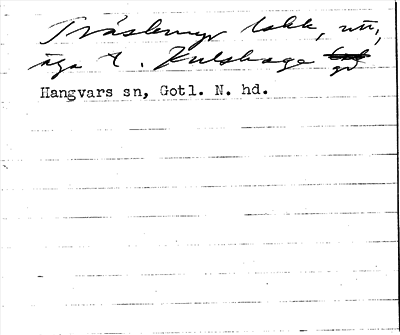 Träskmyr takk, utr,
äga t. Kulshage gd
Hangvars sn, Gotl. N. hd.